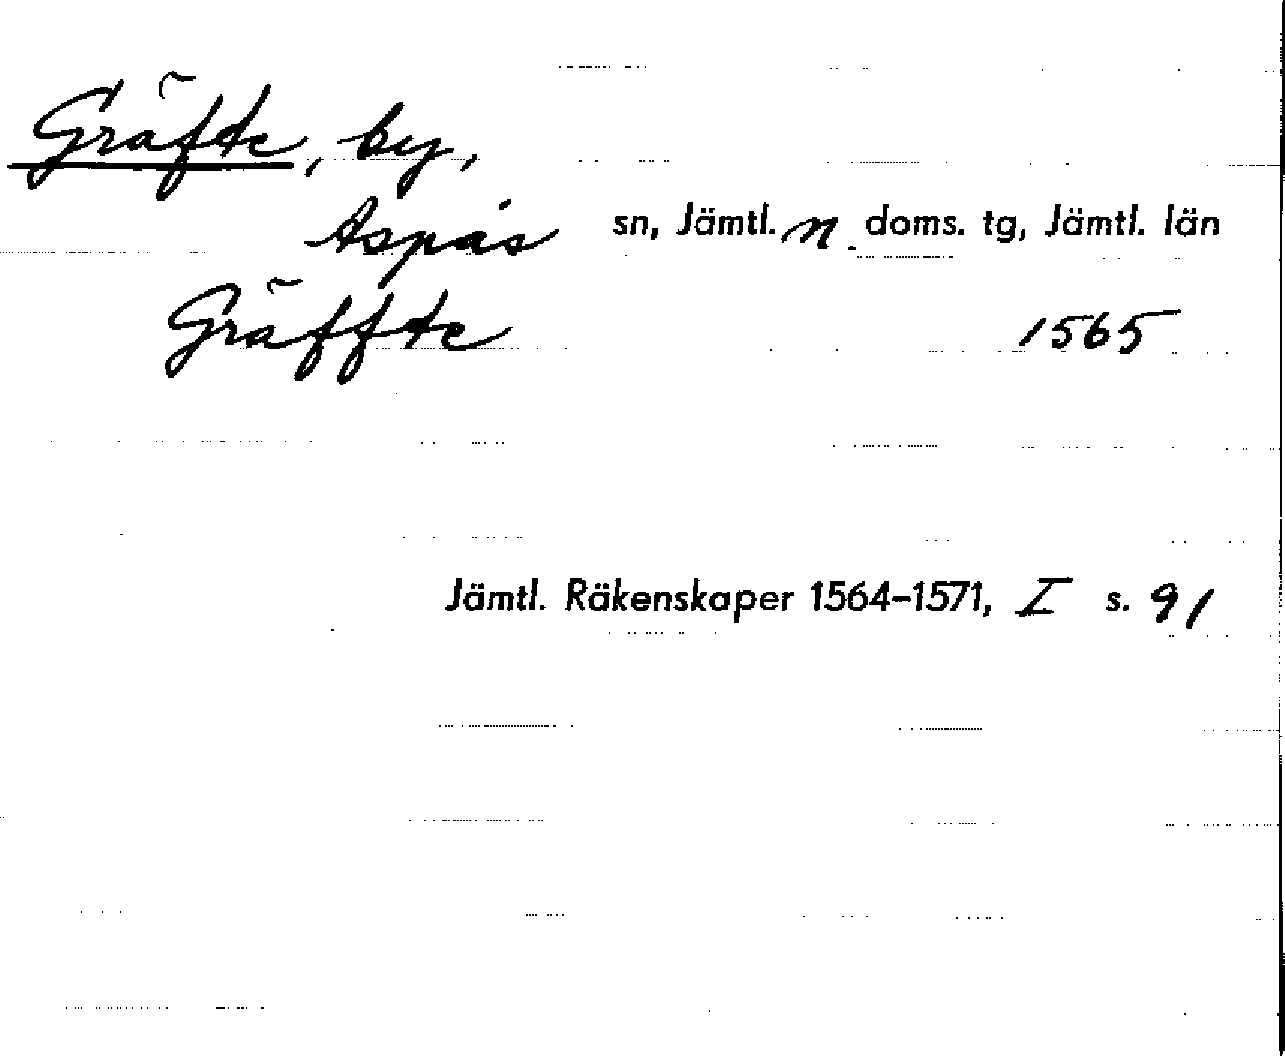 Gräfte, by,
Aspås sn, Jämtl. n doms. tg, Jämtl. län
Gräffte 1565
Jämtl. Räkenskaper 1564-1571, I s. 91